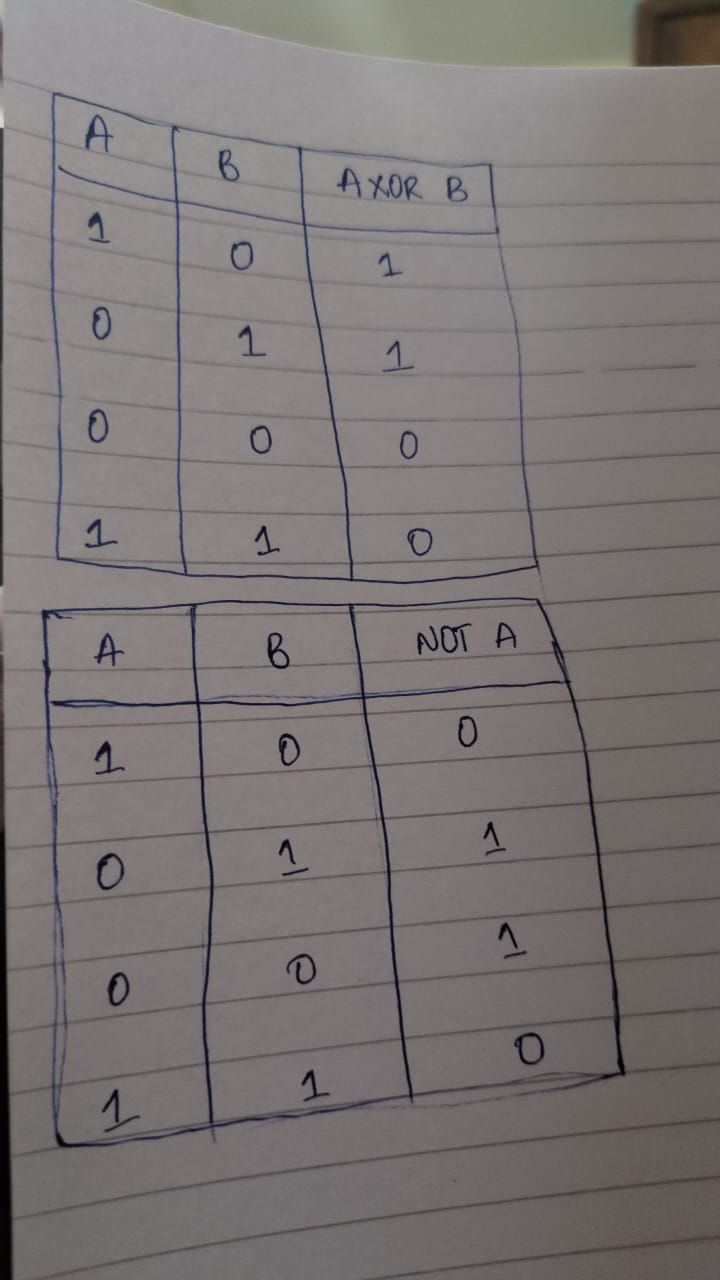 A B A XOR B
1 0 1
0 1 1
0 0 0
1 1 0
A B NOT A
1 0 0
0 1 1
0 0 1
1 1 0